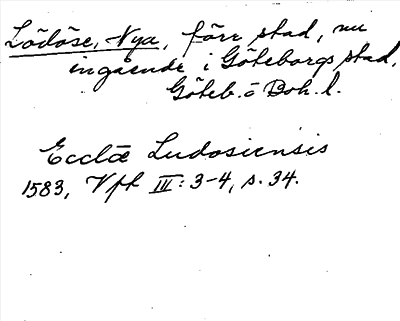 Lödöse, Nya, förr stad, nu
ingående i Göteborgs stad,
Göteb. o Boh. l.
Ecclæ Ludosiensis
1583, Vfh III: 3-4, s. 34.